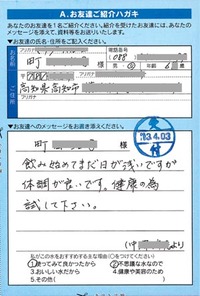 A.お友達ご紹介ハガキ
あなたのお友達を1名ご紹介ください。紹介を受けたお友達には、あなたの
メッセージを添えて、資料等をお送りいたします。
▼お友達の氏名・住所をご記入ください。
フリガナ
電話番号
お名前
町
(088)
〒
ご住所
高知県高知市
フリガナ
▼お友達へのメッセージをお書き添えください。
町
'13.4.03
飲み始めてまだ日が浅いですが
体調が良いです。健康の為
試して下さい。
より
私がこの水をおすすめする主な理由(○をつけてください)
1.使ってみて良かったから 2.不思議な水なので
3.おいしい水だから 4.健康や美容のため
5.その他(